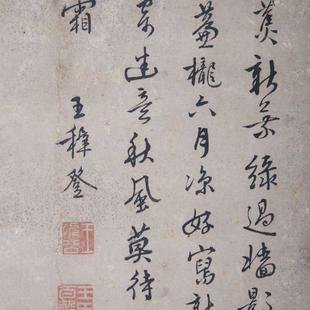 蕉新葉綠過墻影
簾櫳六月涼好寫新
寄遠意秋風莫待
霜
王穉登